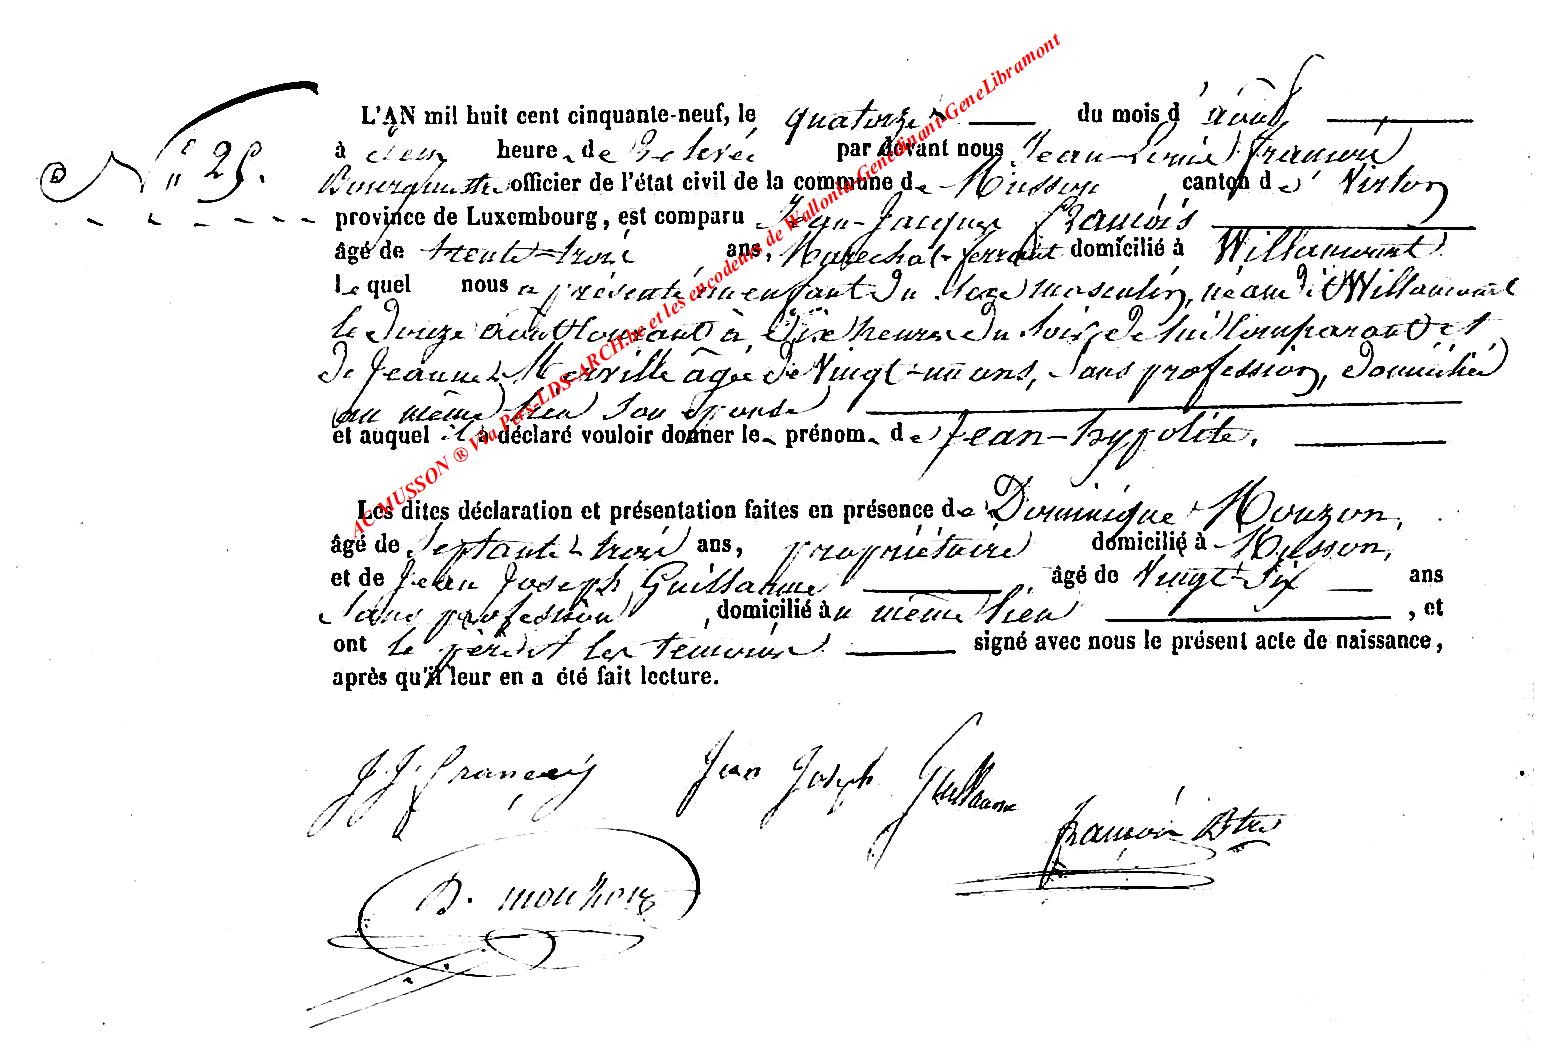 N° 25.
L'AN mil huit cent cinquante-neuf, le quatorze du mois d'août
à deux heures de relevée par devant nous Jean-Louis François
Bourgmestre officier de l'état civil de la commune de Musson, canton de Virton
province de Luxembourg, est comparu Jean-Jacques François
âgé de trente-trois ans, Maréchal-ferrant domicilié à Willancourt
Lequel nous a présenté un enfant du sexe masculin, né à Willancourt
le douze août courant à dix heures du soir, de lui comparant et
de Jeanne Merville âgée de vingt-un ans, sans profession, domiciliée
au même lieu son épouse
et auquel il a déclaré vouloir donner le prénom de Jean-hypolite.
Les dites déclaration et présentation faites en présence de Dominique Mouzon,
âgé de septante-trois ans, propriétaire domicilié à Musson,
et de Jean Joseph Guillaume âgé de vingt-six ans
sans profession, domicilié au même lieu, et
ont le père et les témoins signé avec nous le présent acte de naissance,
après qu'il leur en a été fait lecture.
J J françois Jean Joseph Guillaume
françois Btre
D. mouzon
AC MUSSON ® Via Pers-LDS-ARCH.be et les encodeurs de Wallonia-Genedinant-GeneLibramont